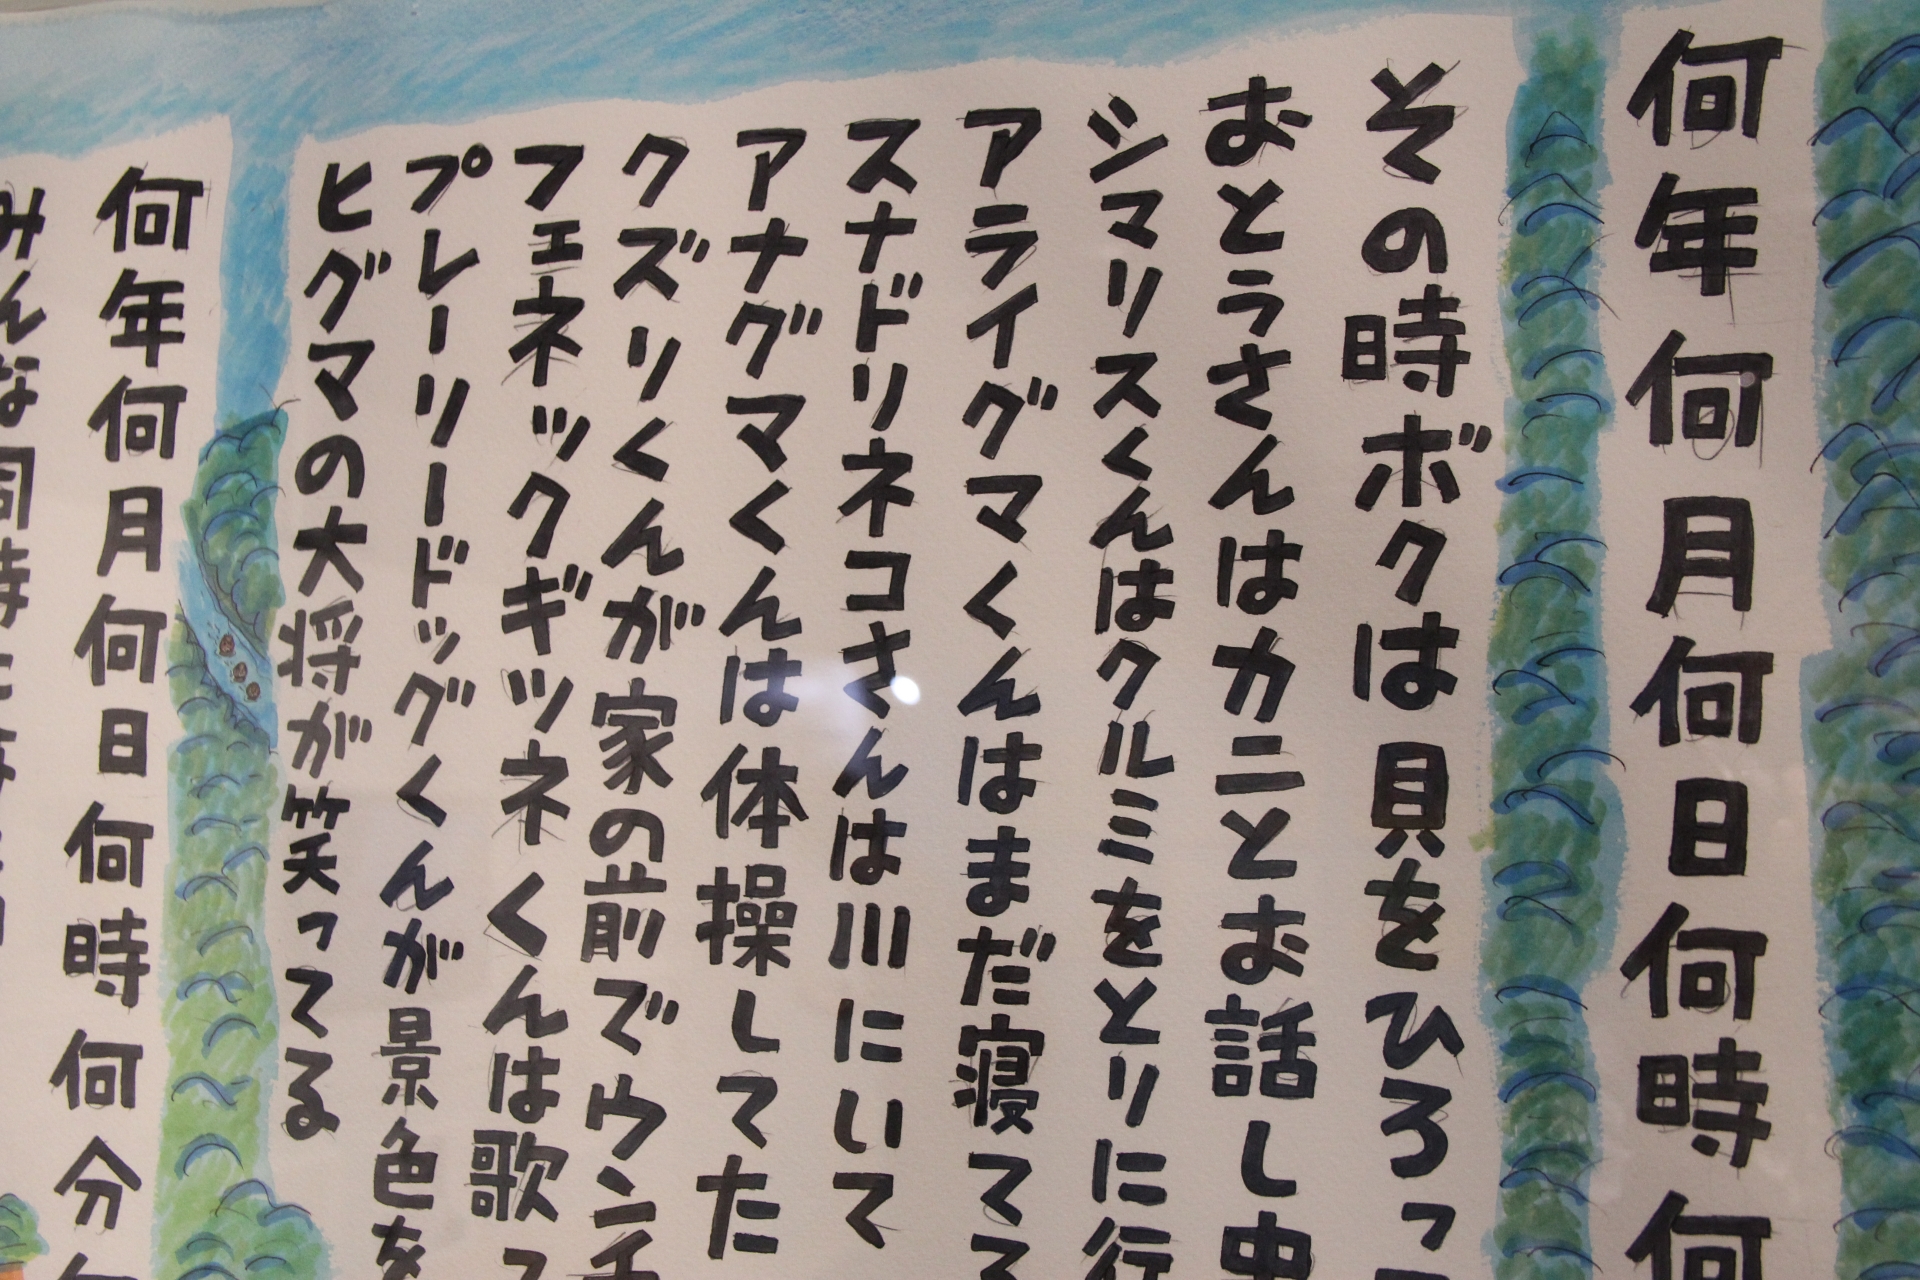 何年何月何日何時何
その時ボクは貝をひろっ
おとうさんはカニとお話し中
シマリスくんはクルミをとりに行
アライグマくんはまだ寝てて
スナドリネコさんは川にいて
アナグマくんは体操してた
クズリくんが家の前でウンチ
フェネックギツネくんは歌って
プレーリードッグくんが景色を
ヒグマの大将が笑ってる
何年何月何日何時何分何
みんな同時に